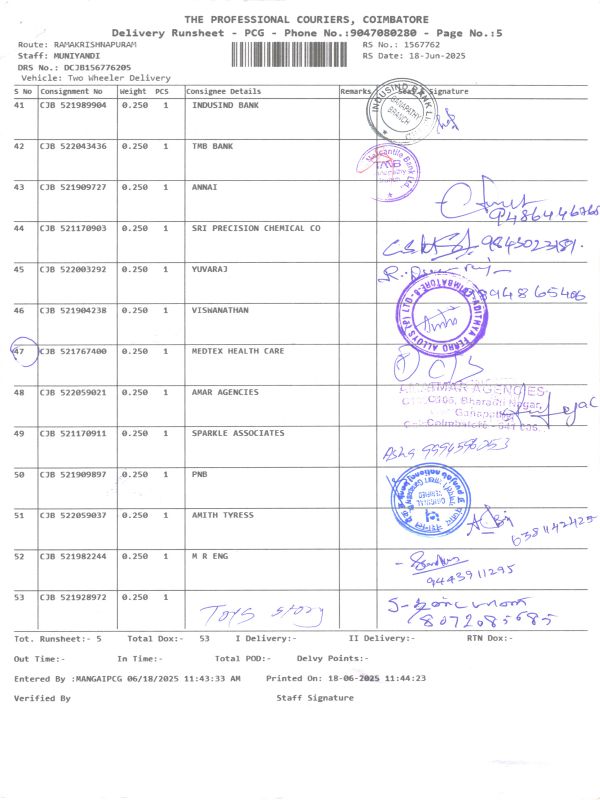 THE PROFESSIONAL COURIERS, COIMBATORE
Delivery Runsheet - PCG - Phone No.:9047080280 - Page No.:5
Route: RAMAKRISHNAPURAM RS No.: 1567762
Staff: MUNIYANDI RS Date: 18-Jun-2025
DRS No.: DCJB156776205
Vehicle: Two Wheeler Delivery
S No Consignment No Weight PCS Consignee Details Remarks Signature
41 CJB 521989904 0.250 1 INDUSIND BANK
INDUSIND BANK LT
GANAPATHY
BRANCH
42 CJB 522043436 0.250 1 TMB BANK
Mercantile Bank Ltd.
43 CJB 521909727 0.250 1 ANNAI
44 CJB 521170903 0.250 1 SRI PRECISION CHEMICAL CO
45 CJB 522003292 0.250 1 YUVARAJ
46 CJB 521904238 0.250 1 VISWANATHAN
ADITHYA FERRO ALLOYS
47 CJB 521767400 0.250 1 MEDTEX HEALTH CARE
48 CJB 522059021 0.250 1 AMAR AGENCIES
AMAR AGENCIES
Bharathi Nagar,
Ganapathy
Coimbatore - 641 006.
49 CJB 521170911 0.250 1 SPARKLE ASSOCIATES
50 CJB 521909897 0.250 1 PNB
51 CJB 522059037 0.250 1 AMITH TYRESS
52 CJB 521982244 0.250 1 M R ENG
9443911295
53 CJB 521928972 0.250 1
Toys story
8072085685
Tot. Runsheet:- 5 Total Dox:- 53 I Delivery:- II Delivery:- RTN Dox:-
Out Time:- In Time:- Total POD:- Delvy Points:-
Entered By :MANGAIPCG 06/18/2025 11:43:33 AM Printed On: 18-06-2025 11:44:23
Verified By Staff Signature